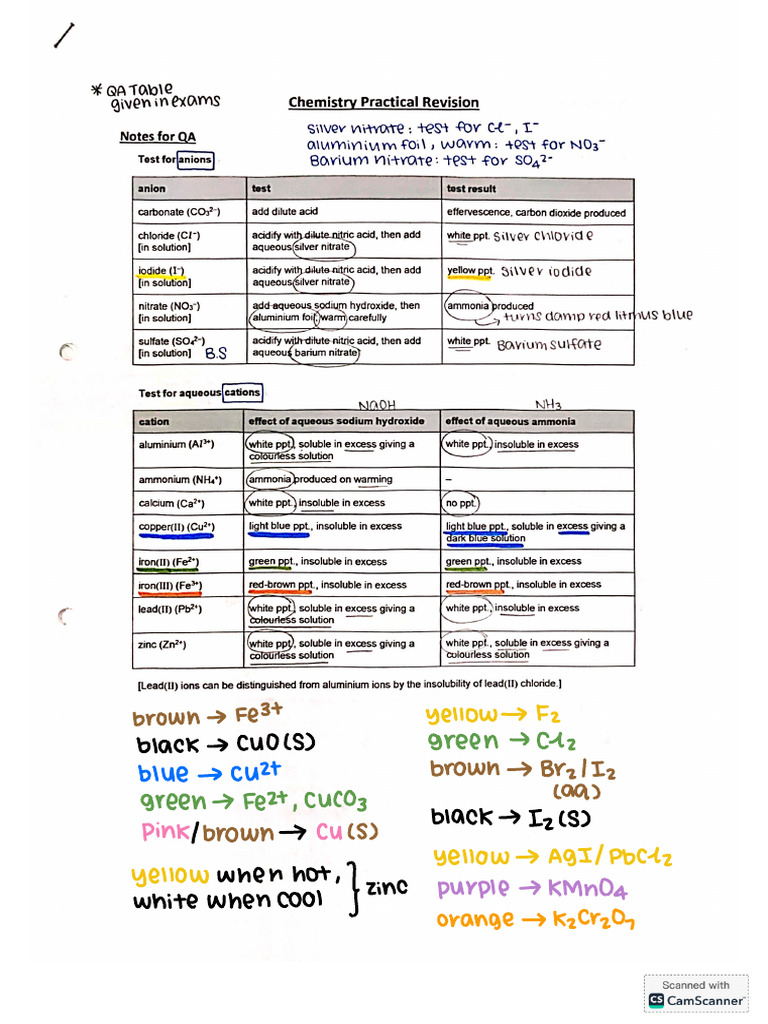 * QA Table
given in exams
Chemistry Practical Revision
Notes for QA
Silver nitrate: test for Cl⁻, I⁻
aluminium foil, warm: test for NO₃⁻
Barium nitrate: test for SO₄²⁻
Test for anions
anion | test | test result
carbonate (CO₃²⁻) | add dilute acid | effervescence, carbon dioxide produced
chloride (Cl⁻) | acidify with dilute nitric acid, then add | white ppt. Silver chloride
[in solution] | aqueous silver nitrate
iodide (I⁻) | acidify with dilute nitric acid, then add | yellow ppt. Silver iodide
[in solution] | aqueous silver nitrate
nitrate (NO₃⁻) | add aqueous sodium hydroxide, then | ammonia produced
[in solution] | aluminium foil; warm carefully | turns damp red litmus blue
sulfate (SO₄²⁻) | acidify with dilute nitric acid, then add | white ppt. Barium sulfate
[in solution] B.S | aqueous barium nitrate
Test for aqueous cations
NaOH | NH₃
cation | effect of aqueous sodium hydroxide | effect of aqueous ammonia
aluminium (Al³⁺) | white ppt., soluble in excess giving a | white ppt., insoluble in excess
colourless solution
ammonium (NH₄⁺) | ammonia produced on warming | –
calcium (Ca²⁺) | white ppt., insoluble in excess | no ppt.
copper(II) (Cu²⁺) | light blue ppt., insoluble in excess | light blue ppt., soluble in excess giving a
dark blue solution
iron(II) (Fe²⁺) | green ppt., insoluble in excess | green ppt., insoluble in excess
iron(III) (Fe³⁺) | red-brown ppt., insoluble in excess | red-brown ppt., insoluble in excess
lead(II) (Pb²⁺) | white ppt., soluble in excess giving a | white ppt., insoluble in excess
colourless solution
zinc (Zn²⁺) | white ppt., soluble in excess giving a | white ppt., soluble in excess giving a
colourless solution | colourless solution
[Lead(II) ions can be distinguished from aluminium ions by the insolubility of lead(II) chloride.]
brown → Fe³⁺
black → CuO(S)
blue → Cu²⁺
green → Fe²⁺, CuCO₃
Pink/brown → Cu(S)
yellow when hot,
white when cool
zinc
yellow → F₂
green → Cl₂
brown → Br₂/I₂
(aq)
black → I₂(S)
yellow → AgI/PbCl₂
purple → KMnO₄
orange → K₂Cr₂O₇
Scanned with
CS CamScanner